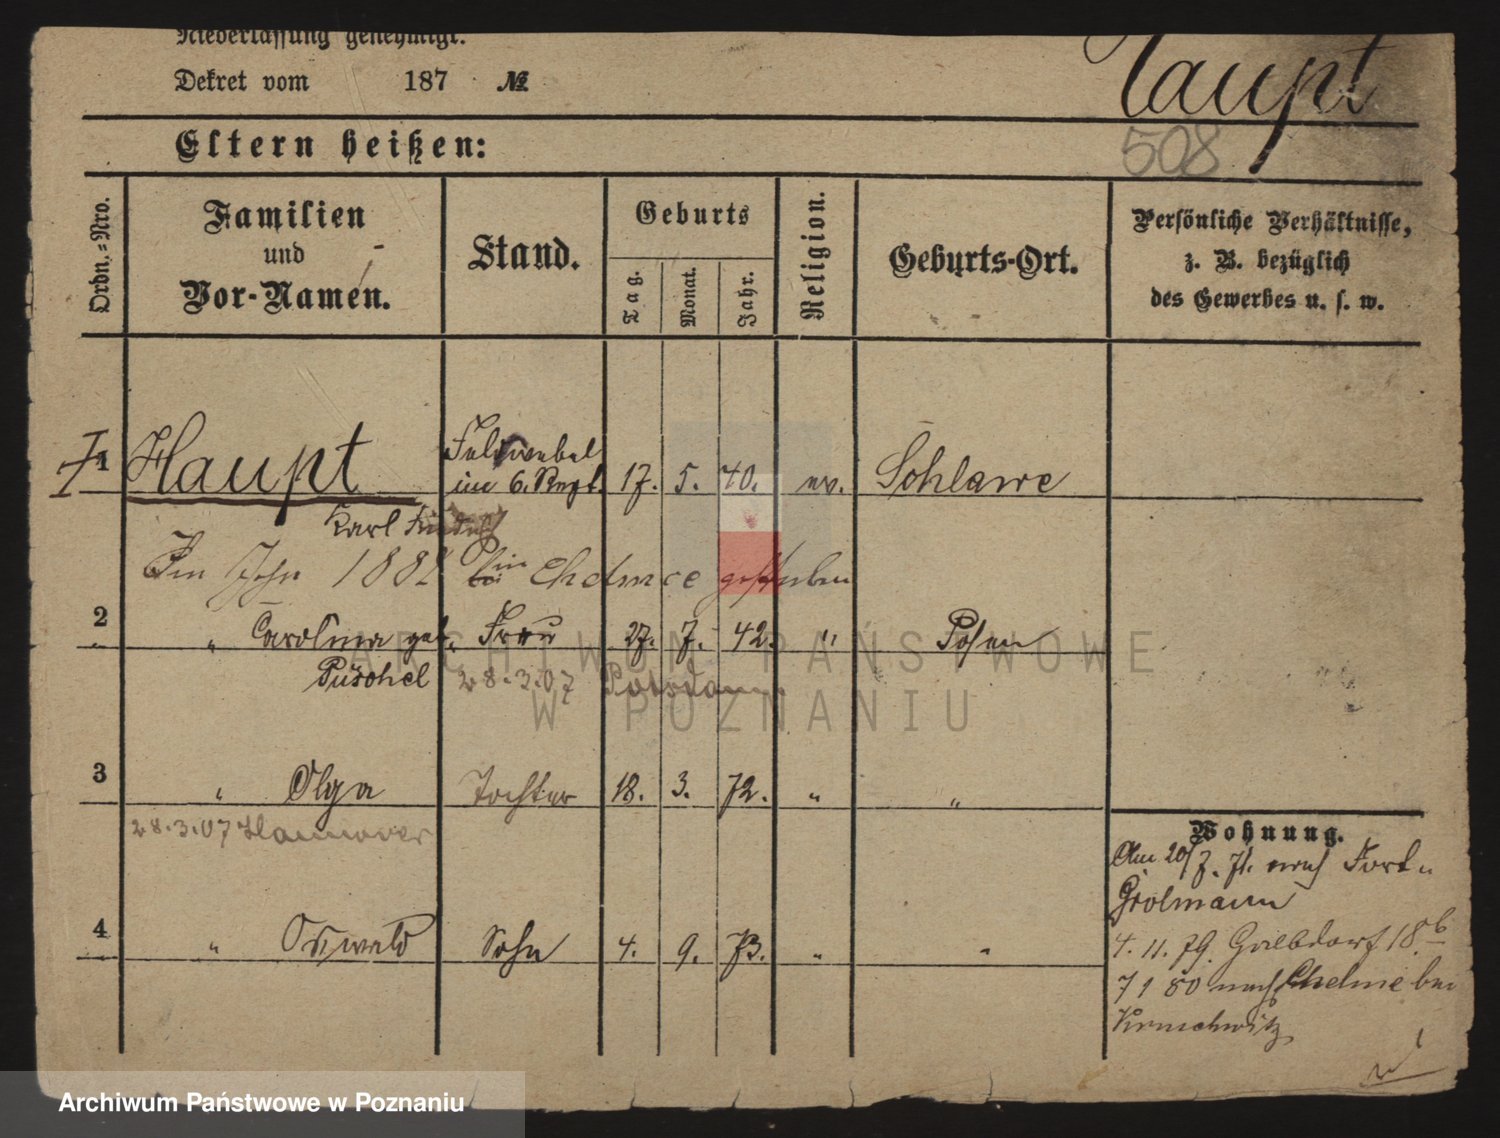 Niederlassung genehmigt.
Dekret vom 187 №
Haupt
508
Eltern heißen:
Ordn.=Nro.
Familien
und
Vor-Namen.
Stand.
Geburts
Tag.
Monat.
Jahr.
Religion.
Geburts-Ort.
Persönliche Verhältnisse,
z. B. bezüglich
des Gewerbes u. s. w.
1 Haupt Feldwebel
im 6. Regt. 17. 5. 40. ev. Schlawe
Karl Friedrich
Im Jahr 1882 in Chelmce gestorben
2 " Carolina geb. Frau 27. 7. 42. " Posen
Püschel 28.3.07 Potsdam
3 " Olga Tochter 18. 3. 72. " "
28.3.07 Hannover
4 " Oswald Sohn 4. 9. 73. " "
Wohnung.
Am 20/7. 71. nach Fort
Grolmann
4. 11. 79. 18b
7 1 80 nach Chelmce bei
Kruschwitz
ARCHIWUM PAŃSTWOWE
W POZNANIU
Archiwum Państwowe w Poznaniu